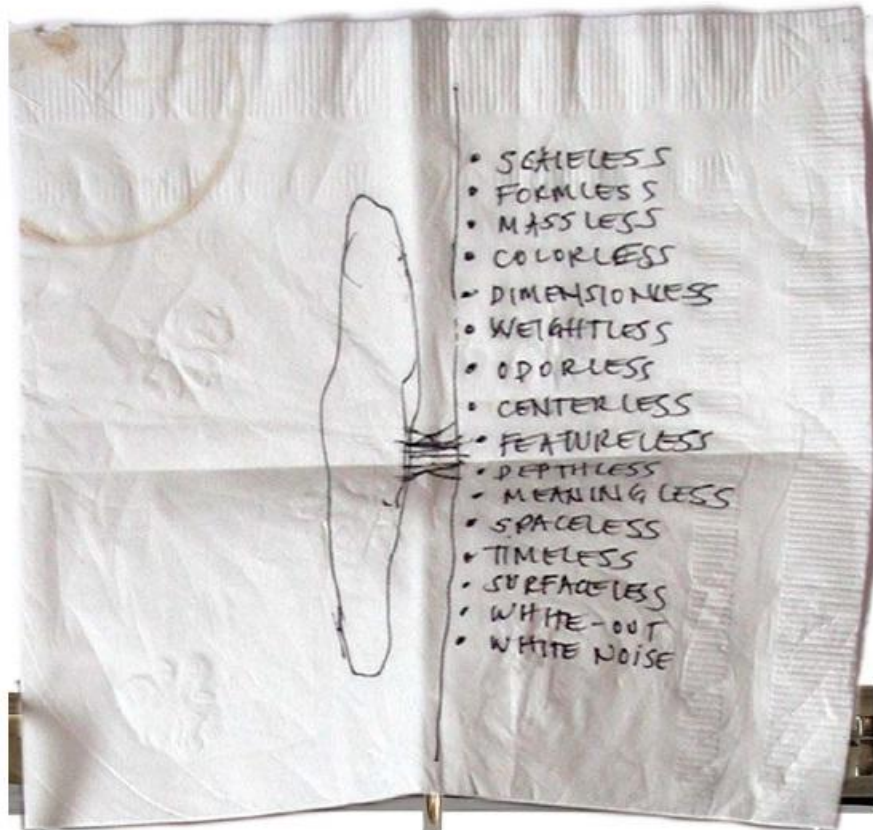 • SCALELESS
• FORMLESS
• MASSLESS
• COLORLESS
• DIMENSIONLESS
• WEIGHTLESS
• ODORLESS
• CENTERLESS
• FEATURELESS
• DEPTHLESS
• MEANINGLESS
• SPACELESS
• TIMELESS
• SURFACELESS
• WHITE-OUT
• WHITE NOISE